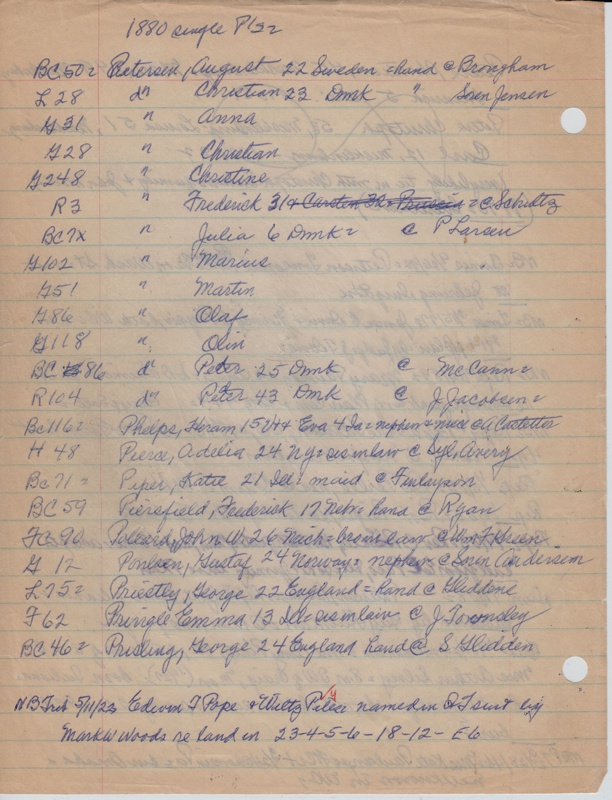 1880 single P's =
BC 50 = Petersen, August 22 Sweden = hand @ Brongham
L 28 do Christian 23 Dmk " Soren Jensen
G 31 " Anna
G 28 " Christian
G 248 " Christine
R 3 " Frederick 31 + Carsten 32 = Prussia = @ Schultz
BC 7X " Julia 6 Dmk = @ P Larsen
G 102 " Marius
G 51 " Martin
G 86 " Olaf
G 118 " Olin
BC 86 do Peter 25 Dmk @ McCann =
R 104 do Peter 43 Dmk @ J Jacobsen =
Bc 116 = Phelps, Hiram 15 + Eva 4 Ia = nephew + niece @ A Castetter
H 48 Pierce, Adelia 24 Ny = sis in law @ Syl. Avery
Bc 71 = Piper, Katie 21 Ill = maid @ Finlayson
BC 59 Piersfield, Frederick 17 Nebr = hand @ Ryan
FC 90 Pollard, John W. 26 Mich = @ Wm F
G 12 Poulsen, Gustaf 24 Norway = nephew @ Soren Andersen
L 75 = Priestly, George 22 England = hand @ Gliddene
F 62 Pringle Emma 13 Ill = sis in law @ J Townsley
BC 46 = Prisling, George 24 England hand @ S Glidden
NB Trib 5/11/22 Edwin T Pope + Wiltz named in QT suit by
Mark W Woods re land in 23-4-5-6-18-12-E6